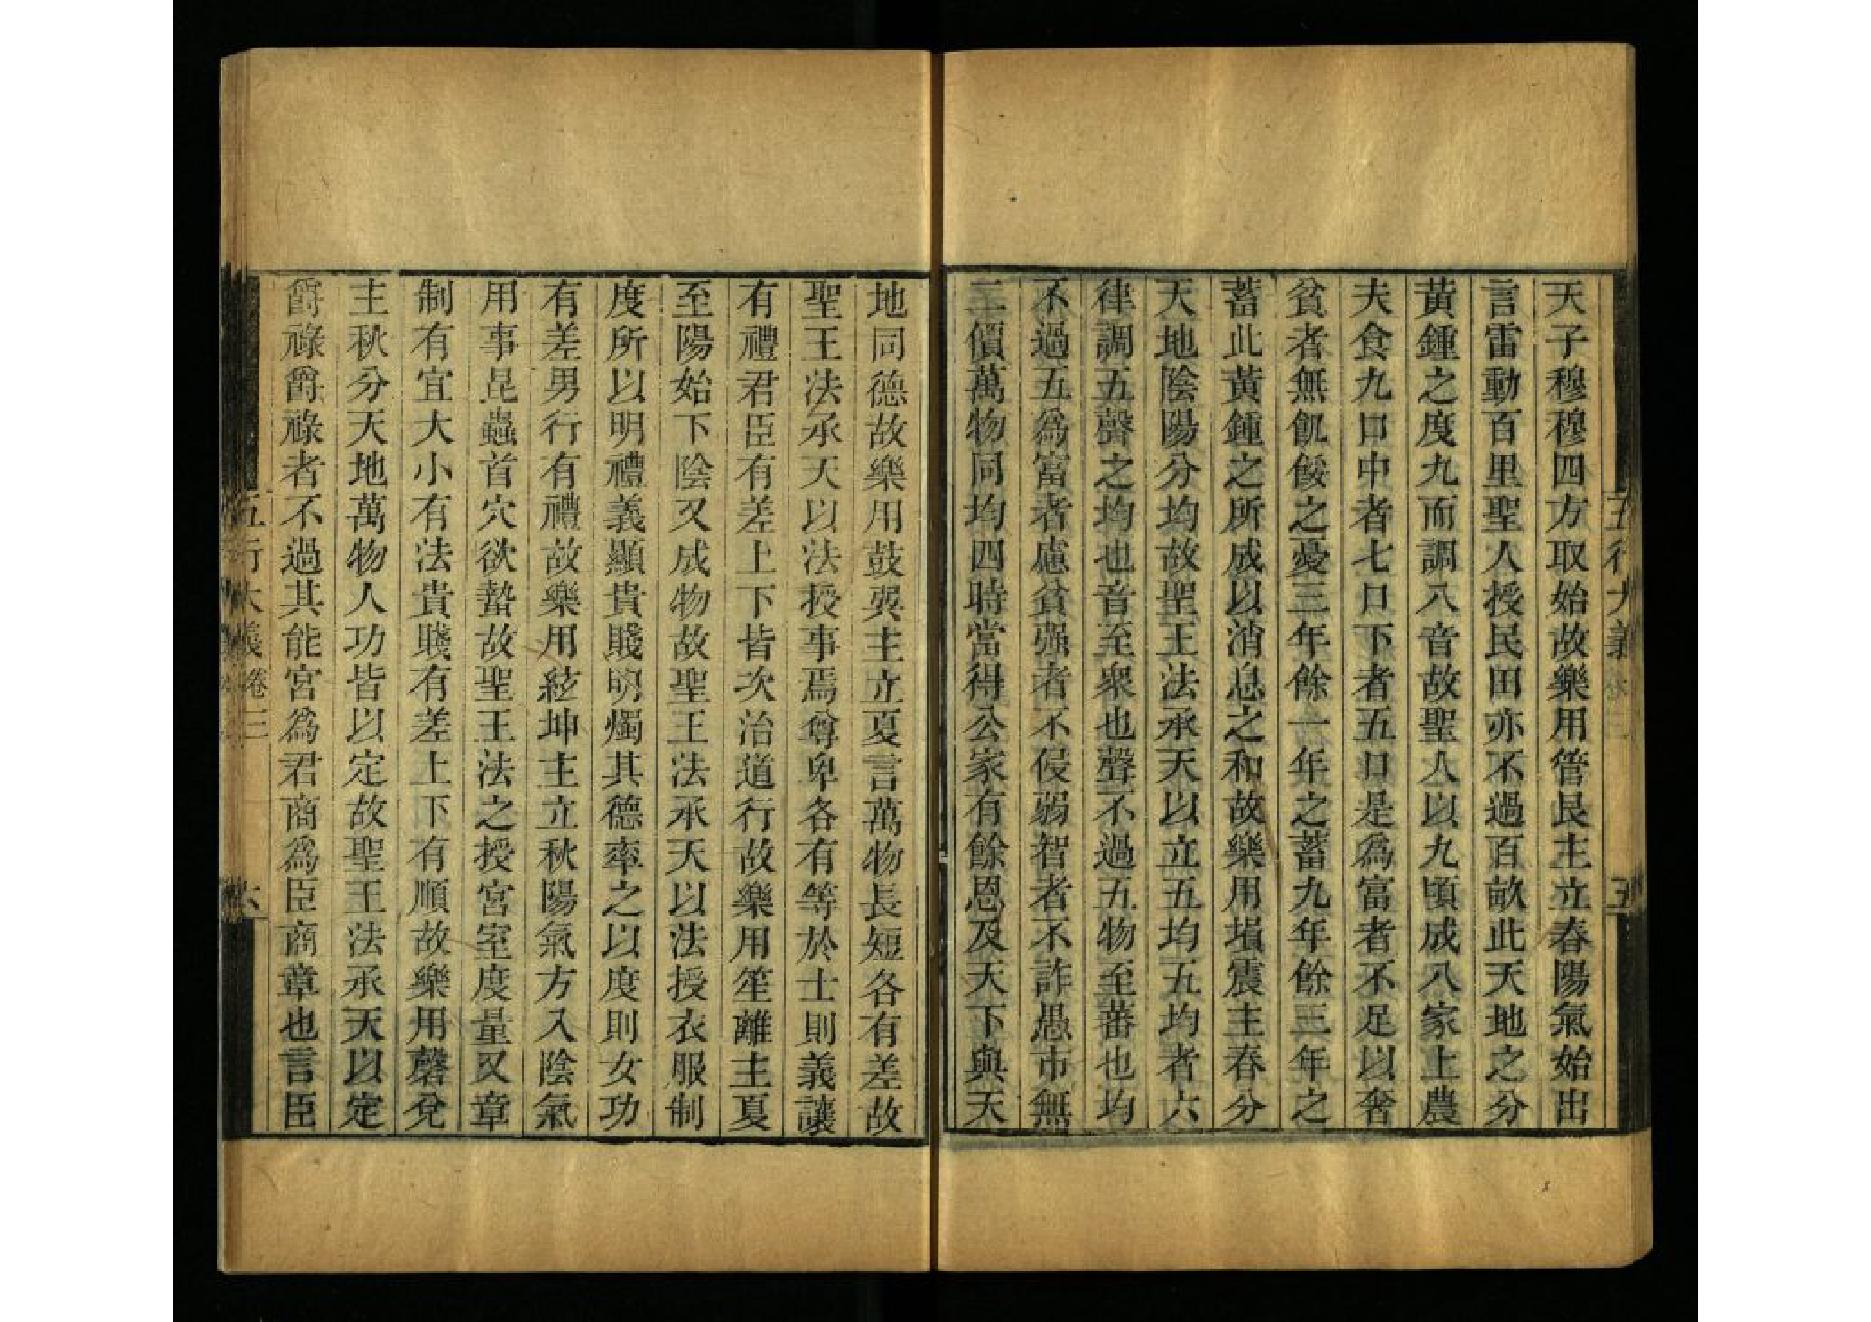 天子穆穆四方取始故樂用管艮主立春陽氣始出
言雷動百里聖人授民田亦不過百畝此天地之分
黃鍾之度九而調八音故聖人以九頃成八家上農
夫食九口中者七口下者五口是爲富者不足以奢
貧者無飢餒之憂三年餘一年之蓄九年餘三年之
蓄此黃鍾之所成以消息之和故樂用塤震主春分
天地陰陽分均故聖王法承天以立五均五均者六
律調五聲之均也音至衆也聲不過五物至蕃也均
不過五爲富者慮貧强者不侵弱智者不詐愚市無
二價萬物同均四時當得公家有餘恩及天下與天
地同德故樂用鼓巽主立夏言萬物長短各有差故
聖王法承天以法授事焉尊卑各有等於士則義讓
有禮君臣有差上下皆次治道行故樂用笙離主夏
至陽始下陰又成物故聖王法承天以法授衣服制
度所以明禮義顯貴賤明燭其德率之以度則女功
有差男行有禮故樂用絃坤主立秋陽氣方入陰氣
用事昆蟲首穴欲蟄故聖王法之授宮室度量又章
制有宜大小有法貴賤有差上下有順故樂用磬兌
主秋分天地萬物人功皆以定故聖王法承天以定
爵祿爵祿者不過其能宮爲君商爲臣商章也言臣
五行大義 卷三 五
五行大義 卷三 六